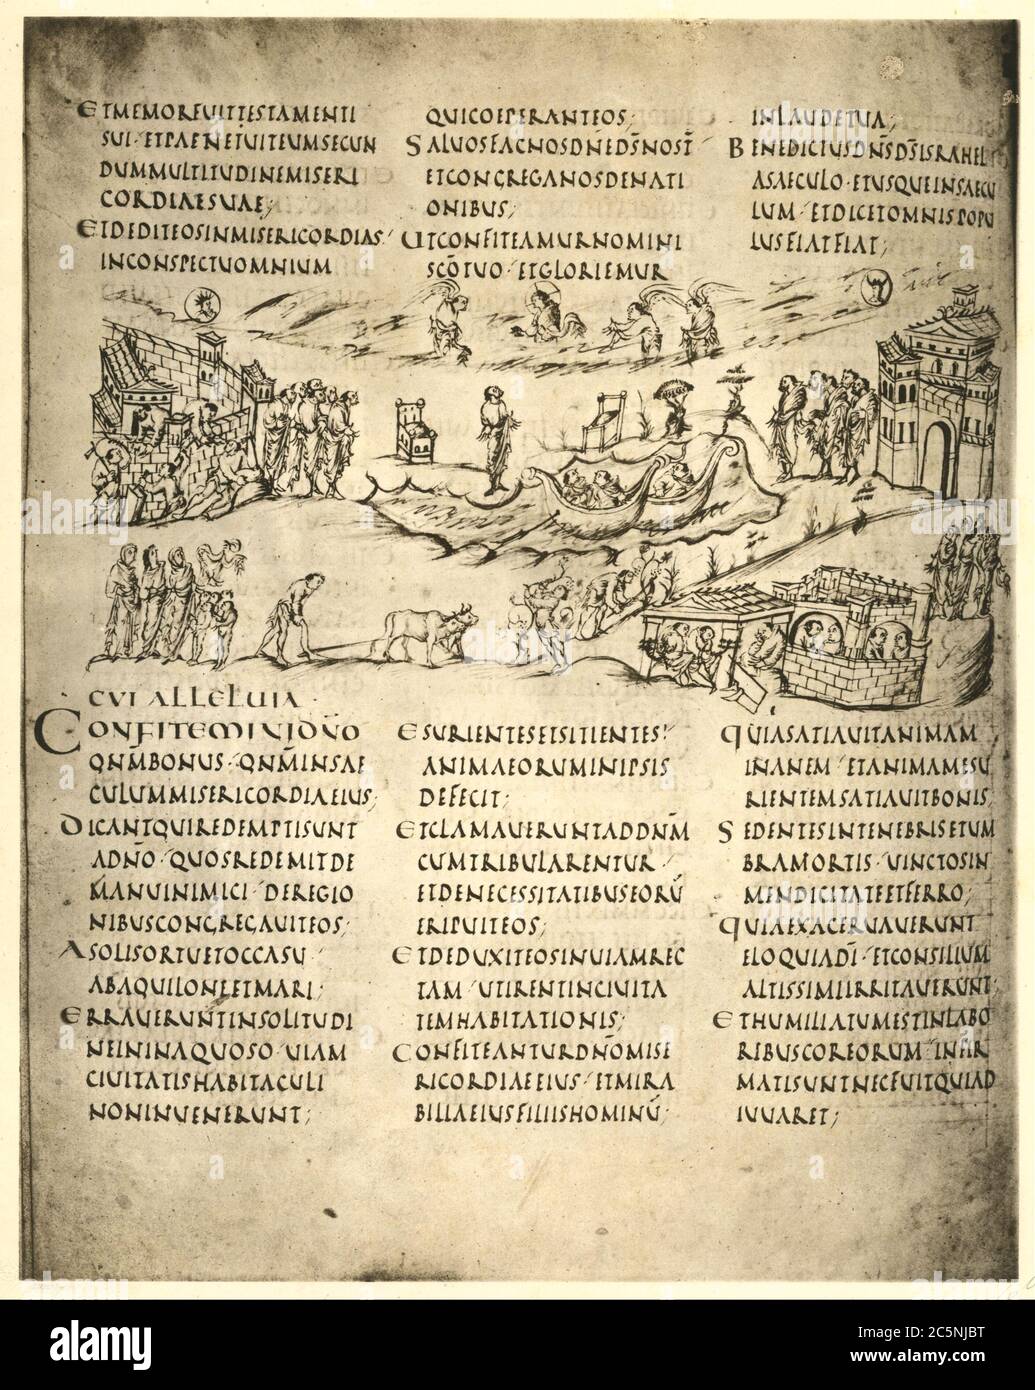 ETMEMORFUITTESTAMENTI
SUI·ETPAENETUITEUMSECUN
DUMMULTITUDINEMISERI
CORDIAESUAE;
ETDEDITEOSINMISERICORDIAS·
INCONSPECTUOMNIUM
QUICOEPERANTEOS;
SALVOSFACNOSDN̄EDS̄NOST̄
ETCONGREGANOSDENATI
ONIBUS;
UTCONFITEAMURNOMINI
SC̄OTUO·ETGLORIEMUR
INLAUDETUA;
BENEDICTUSDN̄SDS̄ISRAHEL
ASAECULO·ETUSQUEINSAECU
LUM·ETDICETOMNISPOPU
LUSFIATFIAT;
CVI ALLELUIA·
CONFITEMINIDN̄O
QNM̄BONUS·QNM̄INSAE
CULUMMISERICORDIAEIUS;
DICANTQUIREDEMPTISUNT
ADN̄O·QUOSREDEMITDE
MANUINIMICI·DEREGIO
NIBUSCONGREGAVITEOS;
ASOLISORTUETOCCASU·
ABAQUILONEETMARI;
ERRAVERUNTINSOLITUDI
NEININAQUOSO·UIAM
CIUITATISHABITACULI
NONINVENERUNT;
ESURIENTESETSITIENTES·
ANIMAEORUMINIPSIS
DEFECIT;
ETCLAMAVERUNTADDN̄M
CUMTRIBULARENTUR·
ETDENECESSITATIBUSEORŪ
ERIPUITEOS;
ETDEDUXITEOSINUIAMREC
TAM·UTIRENTINCIUITA
TEMHABITATIONIS;
CONFITEANTURDN̄OMISE
RICORDIAEEIUS·ETMIRA
BILIAEIUSFILIISHOMINŪ;
QUIASATIAUITANIMAM
INANEM·ETANIMAMESU
RIENTEMSATIAUITBONIS;
SEDENTESINTENEBRISETUM
BRAMORTIS·UINCTOSIN
MENDICITATEETFERRO;
QUIAEXACERVAVERUNT
ELOQUIADĪ·ETCONSILIUM
ALTISSIMIIRRITAVERUNT;
ETHUMILIATUMESTINLABO
RIBUSCOREORUM·INFIR
MATISUNTNECFUITQUIAD
IUUARET;
alamy
Image ID: 2C5NJBT
www.alamy.com